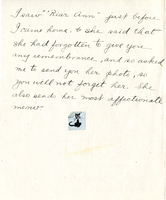 I saw "Dear Ann" just before
I came home, & she said that
she had forgotten to give you
any remembrance, and so asked
me to send you her photo, so
you will not forget her. She
also send her most affectionate